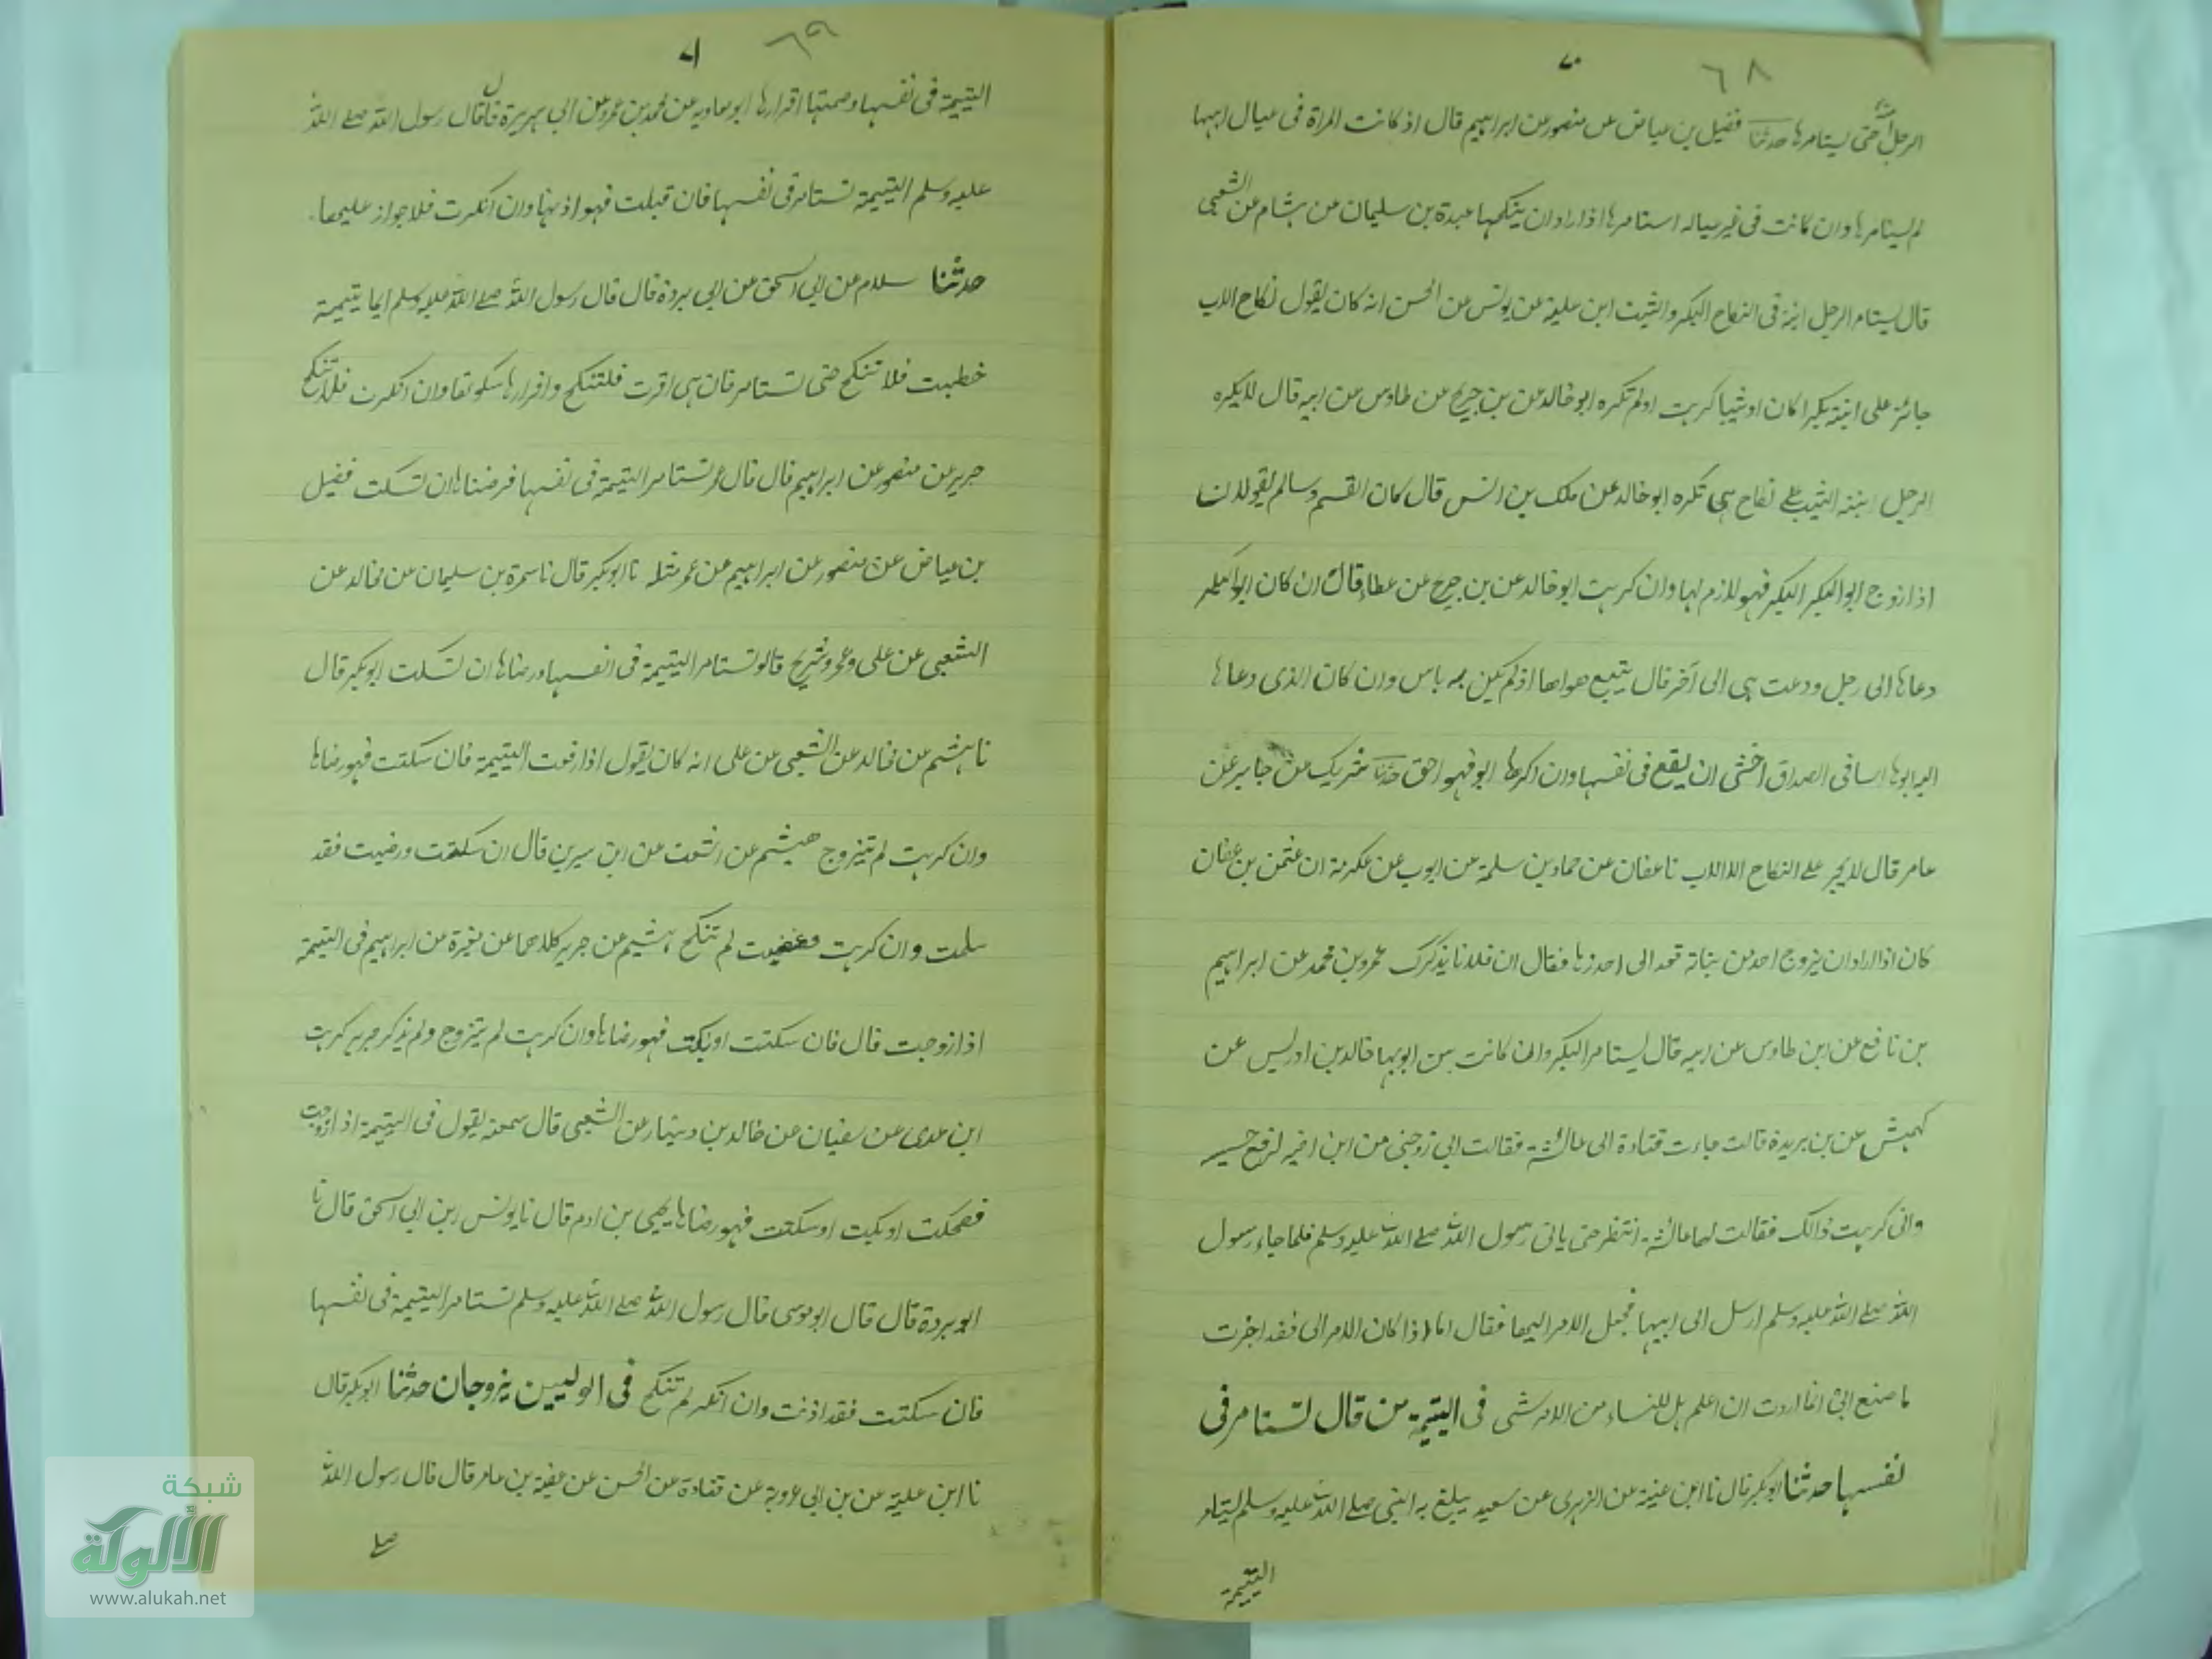 ٧٠ ٦٨
الرجل ابنته حتى يستامرها حدثنا فضيل بن عياض عن منصور عن ابراهيم قال اذ كانت المراة فى عيال ابيها
لم يستامرها وان كانت فى غير عياله استامرها اذا اراد ان ينكحها عبدة بن سليمان عن هشام عن الشعبي
قال يستامر الرجل ابنته فى النكاح البكر والثيب ابن علية عن يونس عن الحسن انه كان يقول نكاح الاب
جائز على ابنته بكرا كان او ثيبا كرهت او لم تكره ابو خالد عن بن جريج عن طاوس عن ابيه قال لا يكره
الرجل ابنته الثيب على نكاح هى تكره ابو خالد عن ملك بن انس قال كان القسم وسالم يقولان
اذا زوج ابو البكر البكر فهو لازم لها وان كرهت ابو خالد عن بن جريج عن عطاء قال ان كان ابو البكر
دعاها الى رجل ودعت هى الى آخر قال يتبع هواها اذ لم يكن به باس وان كان الذى دعاها
اليه ابوها اسا فى الصداق اخشى ان يقع فى نفسها وان اكرهها ابو فهو احق حدثنا شريك عن جابر عن
عامر قال لا يجبر على النكاح الا الاب نا عفان عن حماد بن سلمة عن ايوب عن عكرمة ان عثمن بن عفان
كان اذا اراد ان يزوج احد من بناته قعد الى خدرها فقال ان فلانا يذكرك عمرو بن محمد عن ابراهيم
بن نافع عن ابن طاوس عن ابيه قال يستامر البكر وان كانت بين ابويها خالد بن ادريس عن
كهمش عن بن بريدة قالت جاءت فتادة الى عائشة فقالت ابى زوجنى من ابن اخيه ليرفع خسيسه
وانى كرهت ذالك فقالت لها عائشة انتظر حتى ياتى رسول الله صلے الله عليه وسلم فلما جاء رسول
الله صلے الله عليه وسلم ارسل الى ابيها فجعل الامر اليها فقال اما اذا كان الامر الى فقد اجزت
ما صنع ابى انما اردت ان اعلم هل للنساء من الامر شى فى اليتيمة من قال تستامر فى
نفسها حدثنا ابو بكر قال نا ابن عينة عن الزهرى عن سعيد يبلغ به النبى صلے الله عليه وسلم ليتامر
اليتيمة
٧١ ٦٩
اليتيمة فى نفسها وصمتها اقرارها ابو معاويه عن محمد بن عمرو عن ابى هريرة قال قال رسول الله صلے الله
عليه وسلم اليتيمة تستامر فى نفسها فان قبلت فهو اذنها وان انكرت فلا جواز عليها
حدثنا سلام عن ابى اسحق عن ابى بردة قال قال رسول الله صلے الله عليه وسلم ايما يتيمة
خطبت فلا تنكح حتى تستامر فان هى اقرت فلتنكح واقرارها سكوتها وان انكرت فلا تنكح
جرير عن منصور عن ابراهيم قال قال عمر تستامر اليتيمة فى نفسها فرضاها ان تسكت فضيل
بن عياض عن منصور عن ابراهيم عن عمر مثله نا ابو بكر قال نا سمرة بن سليمان عن مخالد عن
الشعبى عن على وعمر وشريح قالو تستامر اليتيمة فى انفسها ورضاها ان تسكت ابو بكر قال
نا هشيم عن مخالد عن الشعبى عن على انه كان يقول اذا زفت اليتيمة فان سكتت فهو رضاها
وان كرهت لم يتزوج هيشم عن اشعث عن ابن سيرين قال ان سكتت ورضيت فقد
سلمت وان كرهت وغضبت لم تنكح هشيم عن جرير كلاهما عن مغيرة عن ابراهيم فى اليتيمة
اذا زوجت قال فان سكتت او بكت فهو رضاها وان كرهت لم يتزوج ولم يذكر جرير كرهت
ابن عدى عن سفيان عن خالد بن دينار عن الشعبى قال سمعته يقول فى اليتيمة اذا زوجت
فضحكت او بكيت او سكتت فهو رضاها يحيى بن ادم قال نا يونس ابن ابى اسحق قال نا
ابو بردة قال قال ابو موسى قال رسول الله صلے الله عليه وسلم تستامر اليتيمة فى نفسها
فان سكتت فقد اذنت وان انكر لم تنكح فى الوليين يزوجان حدثنا ابو بكر قال
نا ابن علية عن بن ابى عروبة عن قتادة عن الحسن عن عقبة بن عامر قال قال رسول الله
صلے
شبكة
الألوكة
www.alukah.net